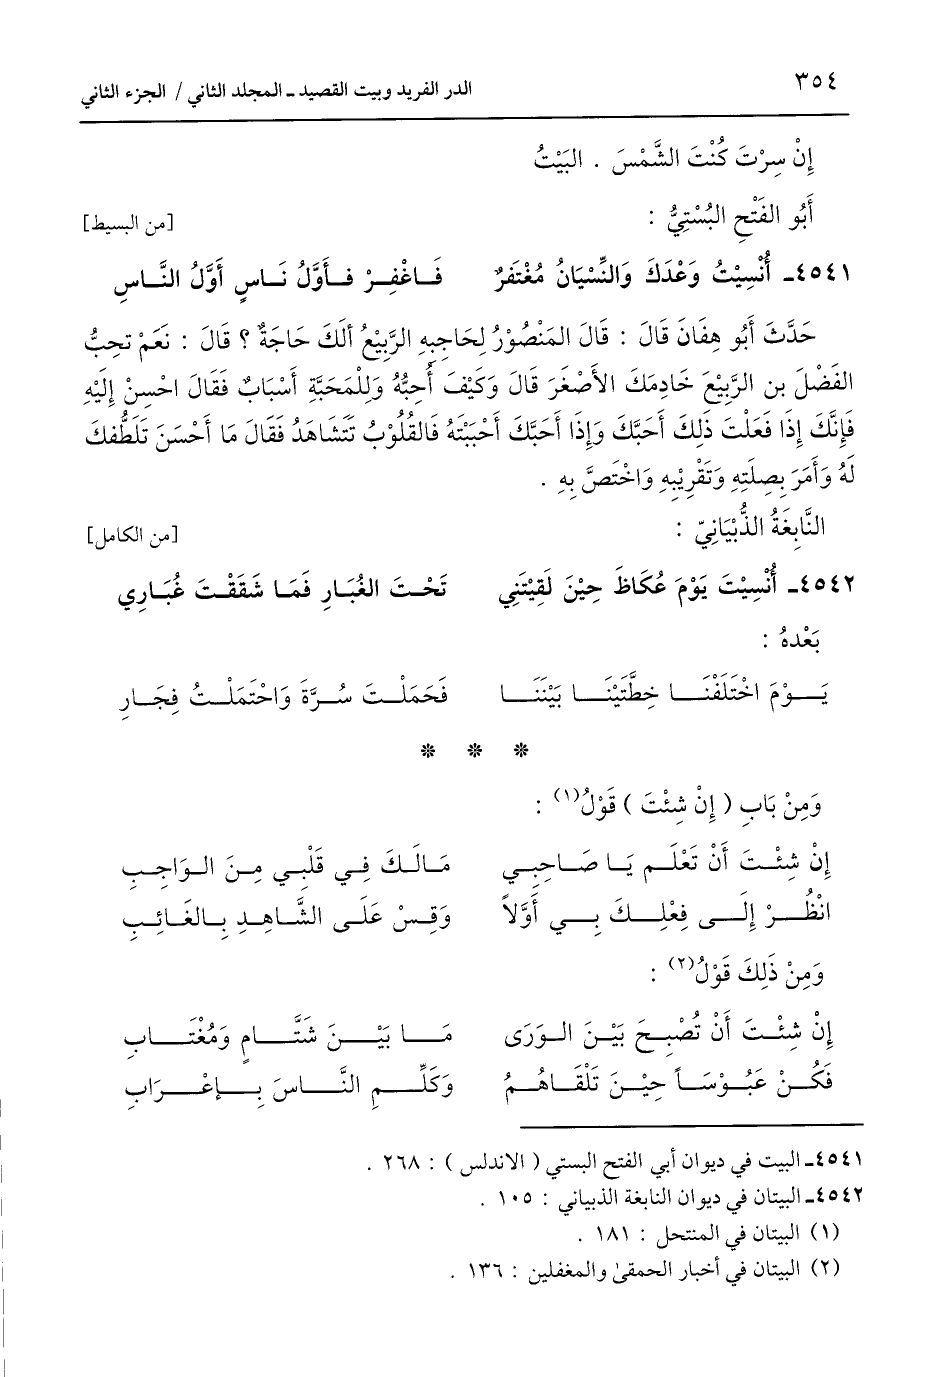 ٣٥٤ الدر الفريد وبيت القصيد ـ المجلد الثاني / الجزء الثاني
إِنْ سِرْتَ كُنْتَ الشَّمْسَ . البَيْتُ
أَبُو الفَتْحِ البُسْتِيُّ : [من البسيط]
٤٥٤١ـ أُنْسِيْتُ وَعْدَكَ وَالنِّسْيَانُ مُغْتَفَرٌ فَاغْفِرْ فَأَوَّلُ نَاسٍ أَوَّلُ النَّاسِ
حَدَّثَ أَبُو هِفَانَ قَالَ : قَالَ المَنْصُوْرُ لِحَاجِبِهِ الرَّبِيْعُ أَلَكَ حَاجَةٌ ؟ قَالَ : نَعَمْ تحِبُّ
الفَضْلَ بن الرَّبِيْعَ خَادِمَكَ الأَصْغَرَ قَالَ وَكَيْفَ أُحِبُّهُ وَلِلْمَحَبَّةِ أَسْبَابٌ فَقَالَ احْسِنْ إِلَيْهِ
فَإِنَّكَ إِذَا فَعَلْتَ ذَلِكَ أَحَبَّكَ وَإِذَا أَحَبَّكَ أَحْبَبْتَهُ فَالقُلُوْبُ تَتَشَاهَدُ فَقَالَ مَا أَحْسَنَ تَلَطُّفكَ
لَهُ وَأَمَرَ بِصِلَتِهِ وَتَقْرِيْبِهِ وَاخْتَصَّ بِهِ .
النَّابِغَةُ الذُّبْيَانِيّ : [من الكامل]
٤٥٤٢ـ أُنْسِيْتَ يَوْمَ عُكَاظَ حِيْنَ لَقِيْتَنِي تَحْتَ الغُبَارِ فَمَا شَقَقْتَ غُبَارِي
بَعْدهُ :
يَوْمَ اخْتَلَفْنَا خِطَّتَيْنَا بَيْنَنَا فَحَمَلْتَ سُرَّةَ وَاحْتَمَلْتُ فِجَارِ
* * *
وَمِنْ بَابِ ( إِنْ شِئْتَ ) قَوْلُ(١) :
إِنْ شِئْتَ أَنْ تَعْلَم يَا صَاحِبِي مَالَكَ فِي قَلْبِي مِنَ الوَاجِبِ
انْظُرْ إِلَى فِعْلِكَ بِي أَوَّلاً وَقِسْ عَلَى الشَّاهِدِ بِالغَائِبِ
وَمِنْ ذَلِكَ قَوْلُ(٢) :
إِنْ شِئْتَ أَنْ تُصْبِحَ بَيْنَ الوَرَى مَا بَيْنَ شَتَّامٍ وَمُغْتَابِ
فَكُنْ عَبُوْسَاً حِيْنَ تَلْقَاهُمُ وَكَلِّمِ النَّاسَ بِإِعْرَابِ
٤٥٤١ـ البيت في ديوان أبي الفتح البستي ( الاندلس ) : ٢٦٨ .
٤٥٤٢ـ البيتان في ديوان النابغة الذبياني : ١٠٥ .
(١) البيتان في المنتحل : ١٨١ .
(٢) البيتان في أخبار الحمقىٰ والمغفلين : ١٣٦ .